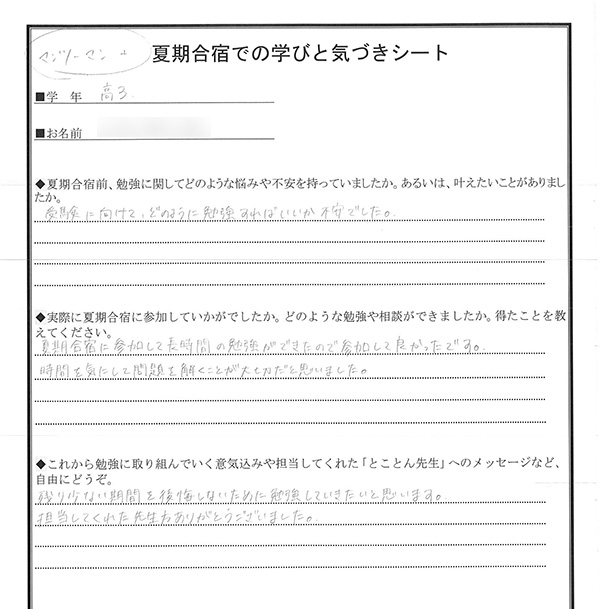 マンツーマン
夏期合宿での学びと気づきシート
■学　年　高3
■お名前
◆夏期合宿前、勉強に関してどのような悩みや不安を持っていましたか。あるいは、叶えたいことがありまし
たか。
受験に向けて、どのように勉強すればいいか不安でした。
◆実際に夏期合宿に参加していかがでしたか。どのような勉強や相談ができましたか。得たことを教
えてください。
夏期合宿に参加して長時間の勉強ができたので参加して良かったです。
時間を気にして問題を解くことが大切だと思いました。
◆これから勉強に取り組んでいく意気込みや担当してくれた「とことん先生」へのメッセージなど、
自由にどうぞ。
残り少ない期間を後悔しないために勉強していきたいと思います。
担当してくれた先生方ありがとうございました。